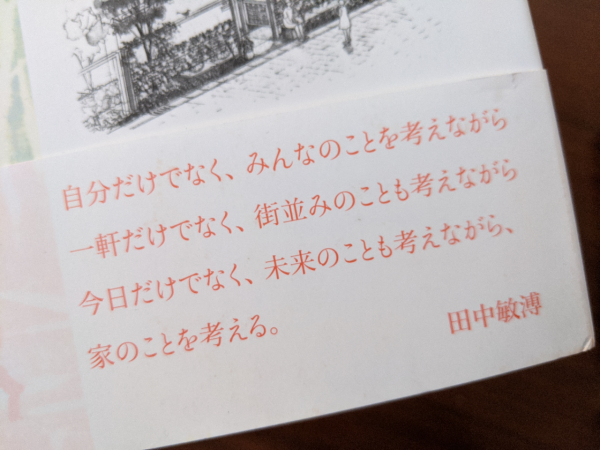 自分だけでなく、みんなのことを考えながら
一軒だけでなく、街並みのことも考えながら
今日だけでなく、未来のことも考えながら、
家のことを考える。
田中敏溥